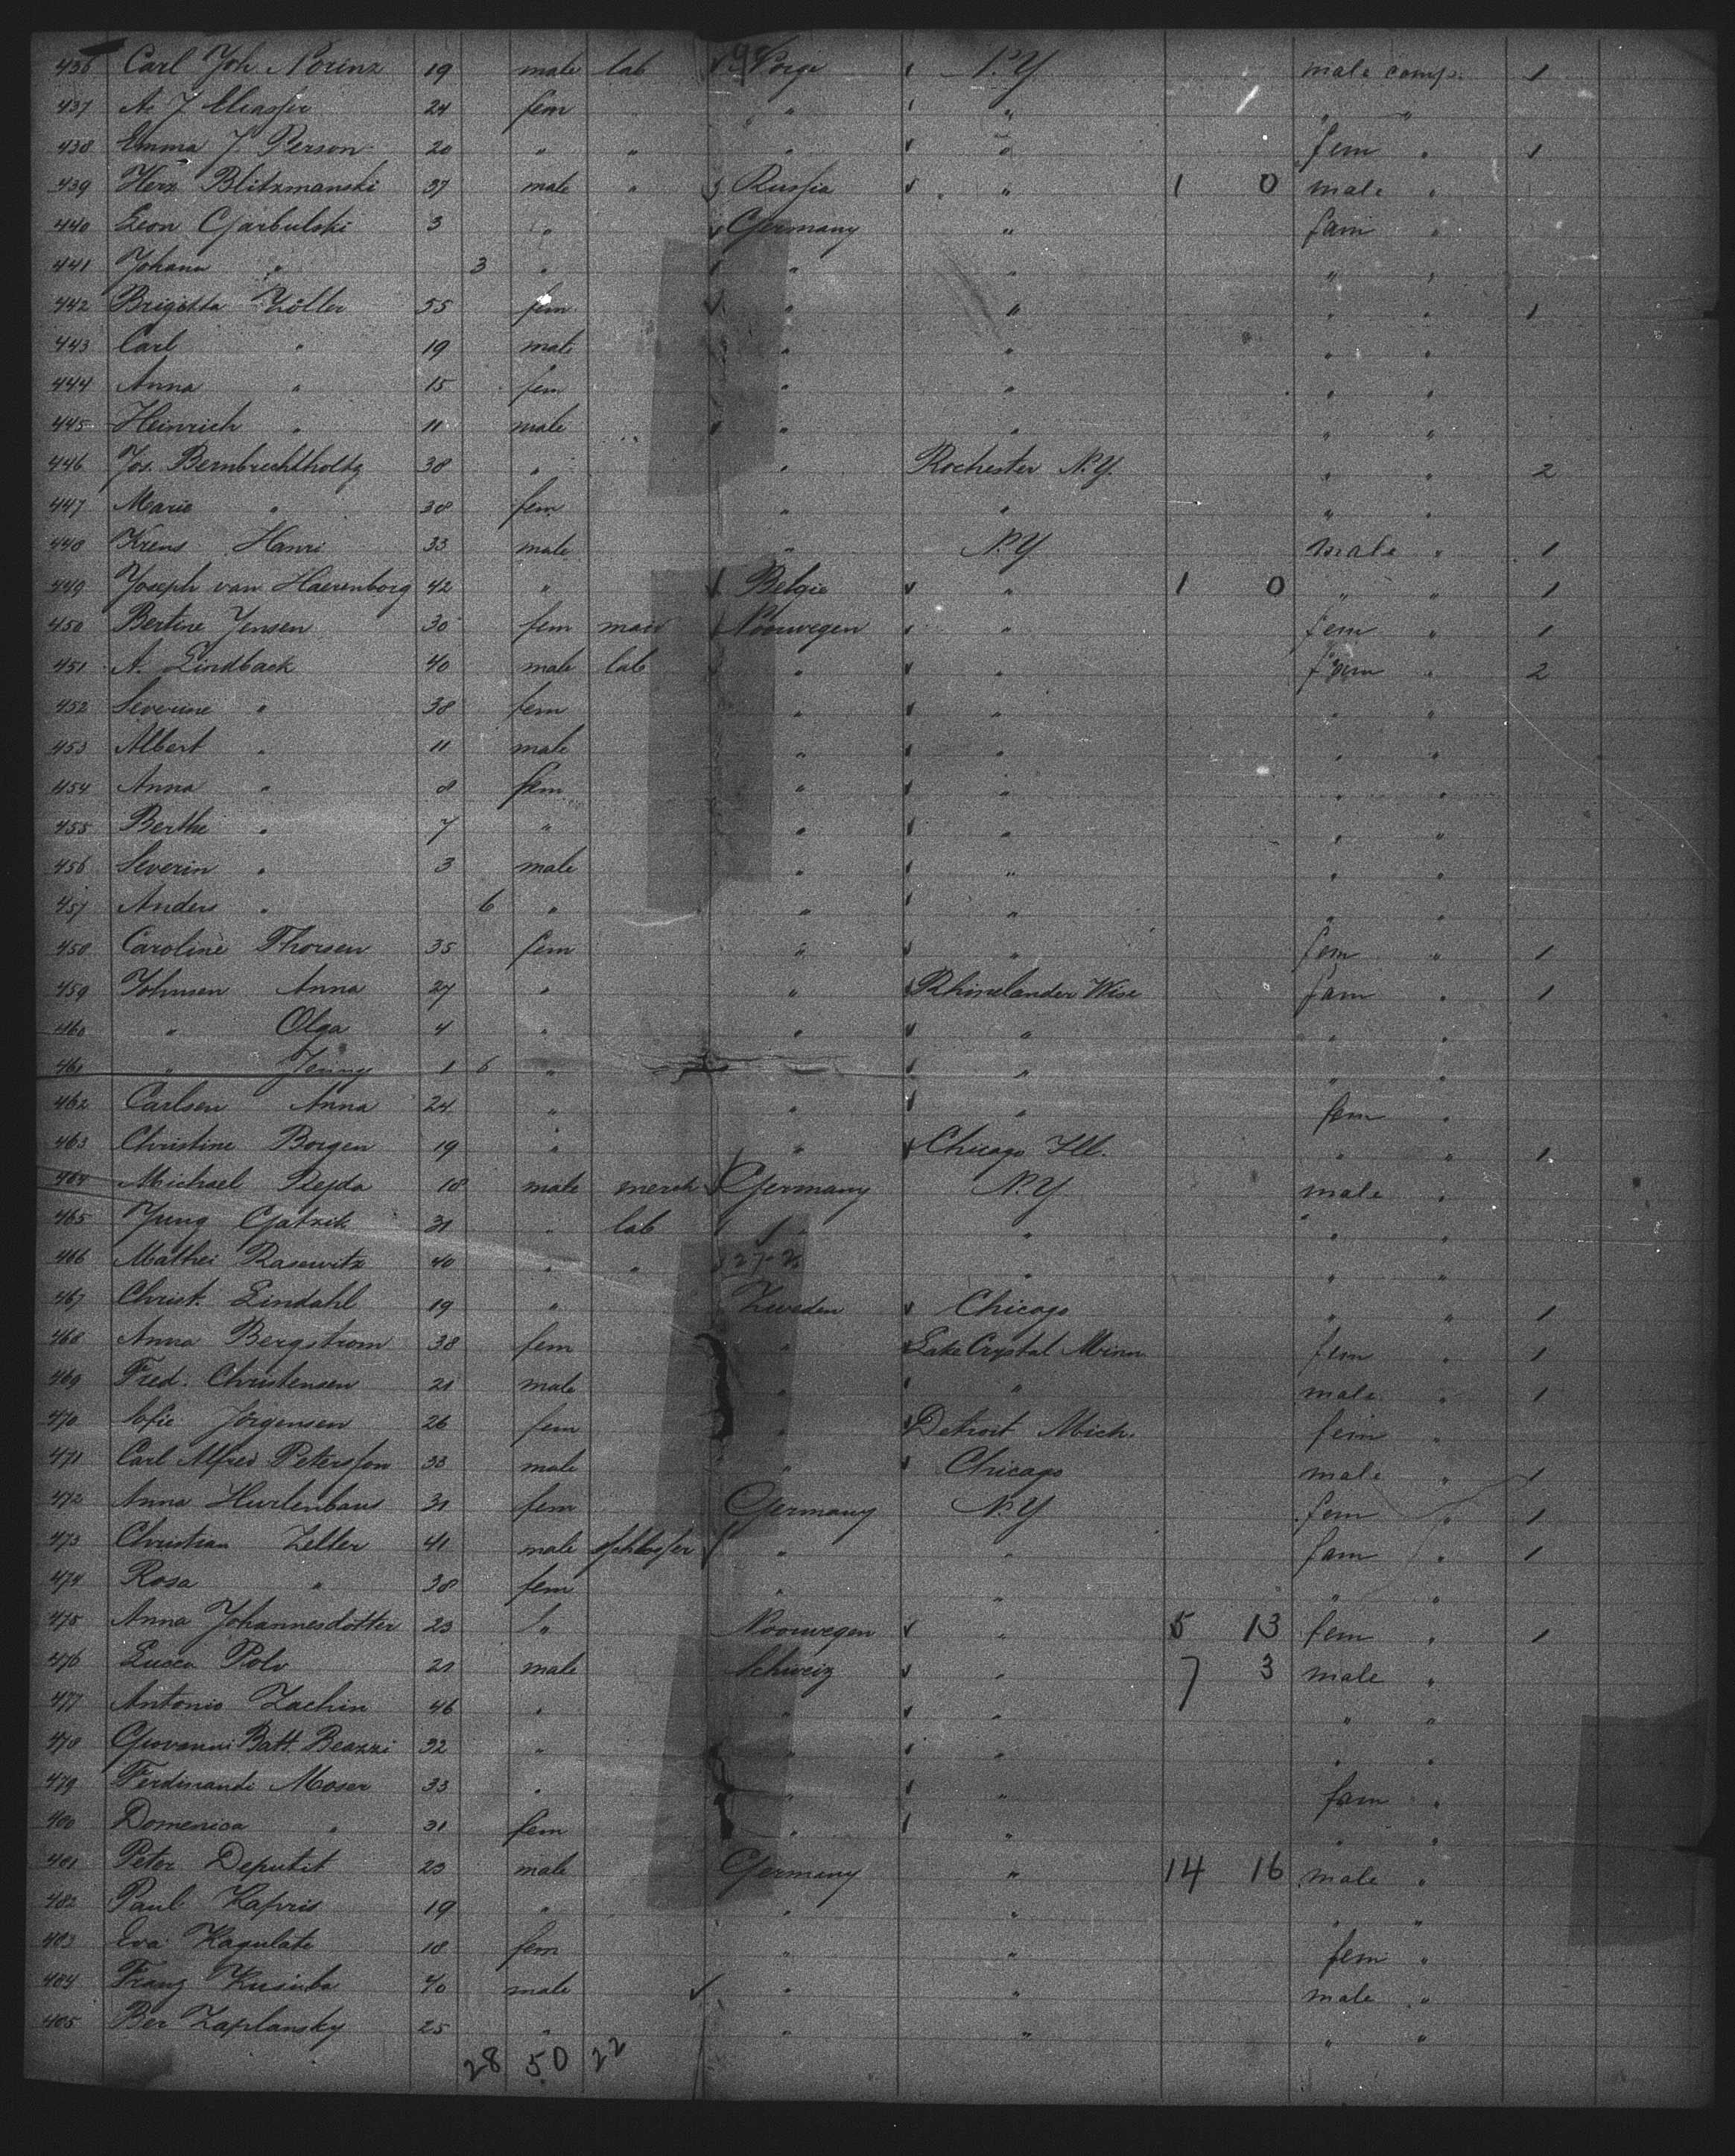 436 Carl Joh Norinz 19 male lab Norge N.Y male comp. 1
437 A. J Eliasser 24 fem " " " " "
438 Emma J Person 20 " " " " fem " 1
439 Herz Blitzmanski 37 male " Russia " 1 0 male "
440 Leon Garbulski 3 " Germany " fam "
441 Johann " 3 " " " " "
442 Brigitta Zöller 55 fem " " " " 1
443 Carl " 19 male " " " "
444 Anna " 15 fem " " " "
445 Heinrich " 11 male " " " "
446 Jos. Bernbrechtholtz 38 " " Rochester N.Y. " " 2
447 Marie " 38 fem " " " "
448 Krens Hanri 33 male " N.Y male " 1
449 Joseph van Haerenborg 42 " Belgie " 1 0 " " 1
450 Bertine Jensen 30 fem maid Noorwegen " fem " 1
451 A. Lindback 40 male lab " " fam " 2
452 Severine " 38 fem " " " "
453 Albert " 11 male " " " "
454 Anna " 8 fem " " " "
455 Berthe " 7 " " " " "
456 Severin " 3 male " " " "
457 Anders " 6 " " " " "
458 Caroline Thorsen 35 fem " " fem " 1
459 Johnsen Anna 27 " " Rhinelander Wisc fam " 1
460 " Olga 4 " " " " "
461 " Jenny 1 6 " " " " "
462 Carlsen Anna 24 " " " fem "
463 Christine Borgen 19 " " Chicago Ill. " " 1
464 Michael Rejda 18 male merch Germany N.Y male "
465 Jung Gatzik 31 " lab " " " "
466 Mathei Rasewitz 40 " " " " "
467 Christ. Lindahl 19 " Zweden Chicago " " 1
468 Anna Bergstrom 38 fem " Lake Crystal Minn fem " 1
469 Fred. Christensen 21 male " " male " 1
470 Sofie Jörgensen 26 fem " Detroit Mich. fem "
471 Carl Alfred Petersson 33 male " Chicago male " 1
472 Anna Hurlenbaus 31 fem Germany N.Y fem " 1
473 Christian Zeller 41 male Schlosser " " fam " 1
474 Rosa " 38 fem " " " "
475 Anna Johannesdotter 23 " Noorwegen " 5 13 fem " 1
476 Lucca Polo 21 male Schweiz " 7 3 male "
477 Antonio Zachin 46 " " " " "
478 Giovanni Batt. Beazzi 32 " " " " "
479 Ferdinande Moser 33 " " " fam "
480 Domenica " 31 fem " " " "
481 Peter Deputit 23 male Germany " 14 16 male "
482 Paul Kapris 19 " " " " "
483 Eva Kagulate 18 fem " " fem "
484 Franz Kusinba 40 male " " male "
485 Ber Zaplansky 25 " " " " "
28 50 22